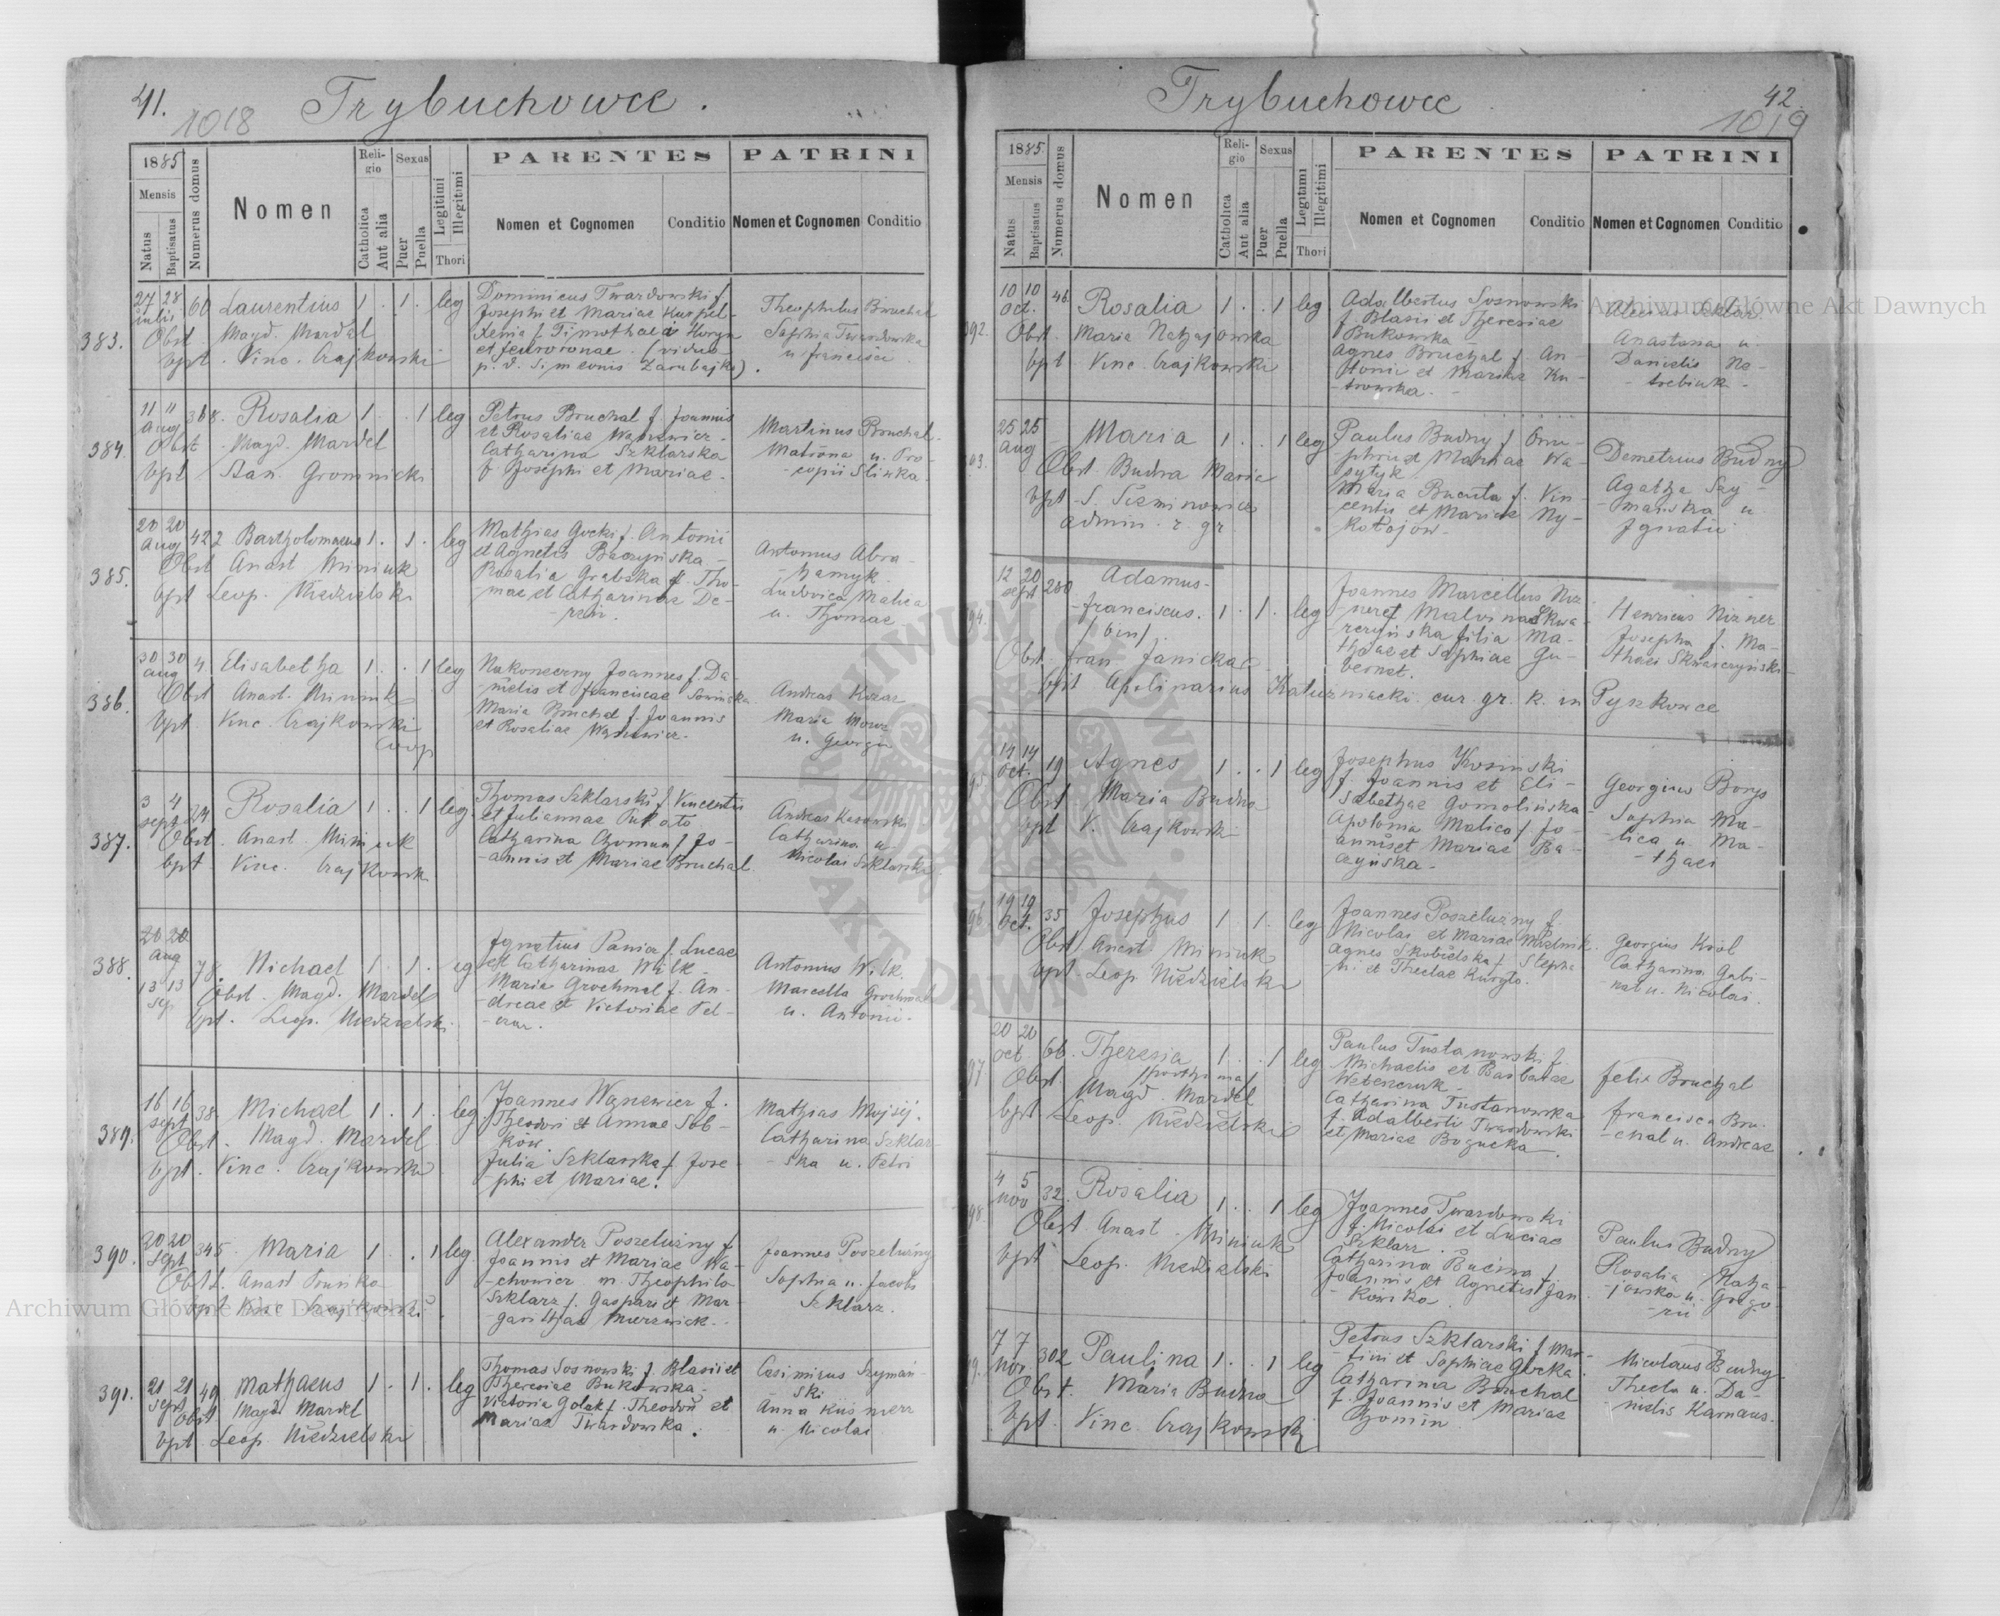 41.
1018
Trybuchowce.
1885
Mensis
Natus
Baptisatus
Numerus domus
Nomen
Religio
Catholica
Aut alia
Sexus
Puer
Puella
Legitimi
Illegitimi
Thori
PARENTES
Nomen et Cognomen
Conditio
PATRINI
Nomen et Cognomen
Conditio
383.
27 28
julis
60 Laurentius 1 . 1 . leg
Obst. Magd. Mardal
bpt. Vinc. Czajkowski
Dominicus Twardowski f.
Josephi et Mariae
Xenia f. Timothaei
Theophilus Bruchal
Sophia Twardowska
u francisci
384.
11 11
Aug
368. Rosalia 1 . . 1 leg
Obst. Magd. Mardel
bpt Stan. Gromnicki
Petrus Bruchal f. Joannis
et Rosaliae Wąsewicz.
Catharina Szklarska
f. Josephi et Mariae.
Martinus Bruchal.
Matrona u. Pro-
copii Sliwka.
385.
20 20
Aug
422 Bartholomaeus 1 . 1 . leg
Obst Anast Miniuk
bpt Leop. Niedzielski
Mathias Gocki f. Antonii
et Agnetis Baczyńska -
Rosalia Grabska f. Tho-
mae et Catharinae De-
Antonius Abra-
-hamyk.
Ludovica Malica
u. Thomae
386.
30 30
aug
4 Elisabetha 1 . . 1 leg
Obst Anast. Miniuk
bpt. Vinc. Czajkowski
Coop
Nakoneczny Joannes f. Da-
nielis et franciscae
Maria Bruchal f. Joannis
et Rosaliae Wąsewicz.
Andreas Kozar
Maria
u. Georgii
387.
3 4
sept
24 Rosalia 1 . . 1 leg
Obst. Anast. Miniuk
bpt. Vinc. Czajkowski
Thomas Szklarski f. Vincentii
et Juliannae
Catharina Chomin f. Jo-
annis et Mariae Bruchal
Andreas Kosowski
Catharina u
Nicolai Szklarski
388.
20 20
Aug
13 13
Sep
78. Michael 1 . 1 . leg
Obst. Magd. Mardel
bpt. Leop. Niedzielski
Ignatius Panicz f. Lucae
et Catharinae Wilk -
Maria Grochmal f. An-
dreae et Victoriae Pel-
-czar.
Antonius Wilk.
Marcella Grochmal
u. Antonii.
389.
16 16
sept
38. Michael 1 . 1 . leg
Obst. Magd. Mardel
bpt. Vinc. Czajkowski
Joannes Wąsewicz f.
Theodori et Annae Sob-
ków
Julia Szklarska f. Jose-
phi et Mariae.
Mathias Mojsij.
Catharina Szklar-
-ska u. Petri
390.
20 20
Sept
345. Maria 1 . . 1 leg
Obst. Anast
bpt Vinc Czajkowski
Alexander Poszeluźny f.
Joannis et Mariae Wa-
-chowicz m. Theophila
Szklarz f. Gaspari et Mar-
garithae Mierzwick.
Joannes Poszeluźny
Sophia u. Jacobi
Szklarz.
391.
21 21
Sept
49 Mathaeus 1 . 1 . leg
Obst Magd. Mardel
bpt. Leop. Niedzielski
Thomas Sosnowski f. Blasii et
Theresiae Bukowska -
Victoria Golak f. Theodori et
Mariae Twardowska.
Casimirus Szymań-
ski
Anna Kusmierz
u. Nicolai
Trybuchowce
42.
1019
1885
Mensis
Natus
Baptisatus
Numerus domus
Nomen
Religio
Catholica
Aut alia
Sexus
Puer
Puella
Legitimi
Illegitimi
Thori
PARENTES
Nomen et Cognomen
Conditio
PATRINI
Nomen et Cognomen
Conditio
392.
10 10
Oct.
46. Rosalia 1 . . 1 leg
Obst. Maria Nahajowska
bpt Vinc. Czajkowski
Adalbertus Sosnowski
f. Blasii et Theresiae
Bukowska
Agnes Bruchal f. An-
tonii et Mariae Ku-
-trowska.
Anastasia u.
Danielis Ne-
-trebiuk.
93.
25 25
Aug
Maria 1 . . 1 leg
Obst. Budna Maria
bpt S.
admin. r. gr
Paulus Budny f. Onu-
-phrii et Mariae Wa-
sytyk
Maria Bucuta f. Vin-
centii et Mariae Ny-
kołojów.
Demetrius Budny
Agatha Szy-
mańska u
Ignatii
94.
12 20
sept
280
Adamus-
-franciscus. 1 . 1 . leg
/bin/
Obst. fran Janickae
bpt Apolinarius Katurniacki cur. gr. k. in Pyszkowce
Joannes Marcellus Niz
-ner et Malvina Skwa-
-rczyńska filia Ma-
thiae et Sophiae Gu-
bernet.
Henricus Nizner
Josepha f. Ma-
thaei Skwarczyński
95
14 14
Oct.
19 Agnes 1 . . 1 leg
Obst Maria Budna
bpt V. Czajkowski
Josephus Kosiński
f. Joannis et Eli-
sabethae Gomolińska
Apolonia Malica f. Jo-
annis et Mariae Ba-
czyńska.
Georgius Borys
Sophia Ma-
-lica u. Ma-
-thaei
96
19 19
Oct.
35 Josephus 1 . 1 . leg
Obst Anast. Miniuk
bpt. Leop. Niedzielski
Joannes Poszeluźny f.
Nicolai et Mariae Mielnik
Agnes Skobielska f. Stepha
ni et Theclae
Georgius Król
Catharina Gabi-
-nat u. Nicolai.
97
20 20
Oct
66. Theresia 1 . . 1 leg
/posthuma/
Obst. Magd. Mardel
bpt Leop. Niedzielski
Paulus Tustanowski f.
Michaelis et Barbarae
Catharina Tustanowska
f. Adalberti Twardowski
et Mariae Bogucka.
Felix Bruchal
francisca Bru-
-chal u. Andreae
98
4 5
nov
32. Rosalia 1 . . 1 leg
Obst. Anast. Miniuk
bpt Leop. Niedzielski
Joannes Twardowski
f. Nicolai et Luciae
Szklarz.
Catharina
Joannis et Agnetis Jan-
-kowska.
Paulus Budny
Rosalia Naha-
jowska u. Grego-
rii
99.
7 7
Nov.
302 Paulina 1 . . 1 leg
Obst. Maria Budna
bpt. Vinc. Czajkowski
Petrus Szklarski f. Mar-
tini et Sophiae Gocka.
Catharina Bruchal
f. Joannis et Mariae
Chomin
Nicolaus Budny.
Thecla u. Da-
nielis Karnaus.
Archiwum Główne Akt Dawnych
Archiwum Główne Akt Dawnych
ARCHIWUM GŁÓWNE AKT DAWNYCH